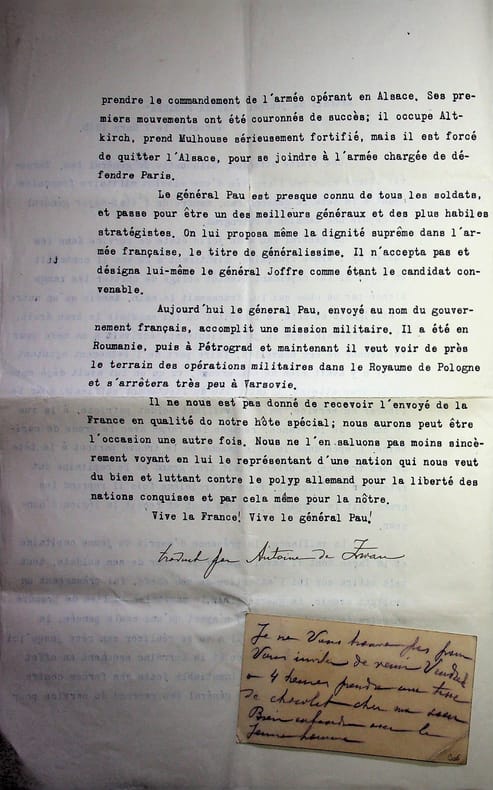 prendre le commandement de l'armée opérant en Alsace. Ses pre-
miers mouvements ont été couronnés de succès; il occupe Alt-
kirch, prend Mulhouse sérieusement fortifié, mais il est forcé
de quitter l'Alsace, pour se joindre à l'armée chargée de dé-
fendre Paris.
Le général Pau est presque connu de tous les soldats,
et passe pour être un des meilleurs généraux et des plus habiles
stratégistes. On lui proposa même la dignité suprême dans l'ar-
mée française, le titre de généralissime. Il n'accepta pas et
désigna lui-même le général Joffre comme étant le candidat con-
venable.
Aujourd'hui le géneral Pau, envoyé au nom du gouver-
nement français, accomplit une mission militaire. Il a été en
Roumanie, puis à Pétrograd et maintenant il veut voir de près
le terrain des opérations militaires dans le Royaume de Pologne
et s'arrêtera très peu à Varsovie.
Il ne nous est pas donné de recevoir l'envoyé de la
France en qualité do notre hôte spécial; nous aurons peut être
l'occasion une autre fois. Nous ne l'en saluons pas moins sincè-
rement voyant en lui le représentant d'une nation qui nous veut
du bien et luttant contre le polyp allemand pour la liberté des
nations conquises et par cela même pour la nôtre.
Vive la France! Vive le général Pau!
traduit par Antoine de
Je ne Vous trouve pas pour
Vous inviter de venir Vendredi
4 heures prendre une tasse
de chocolat chez ma soeur
Bien entendu avec le
Jeune homme